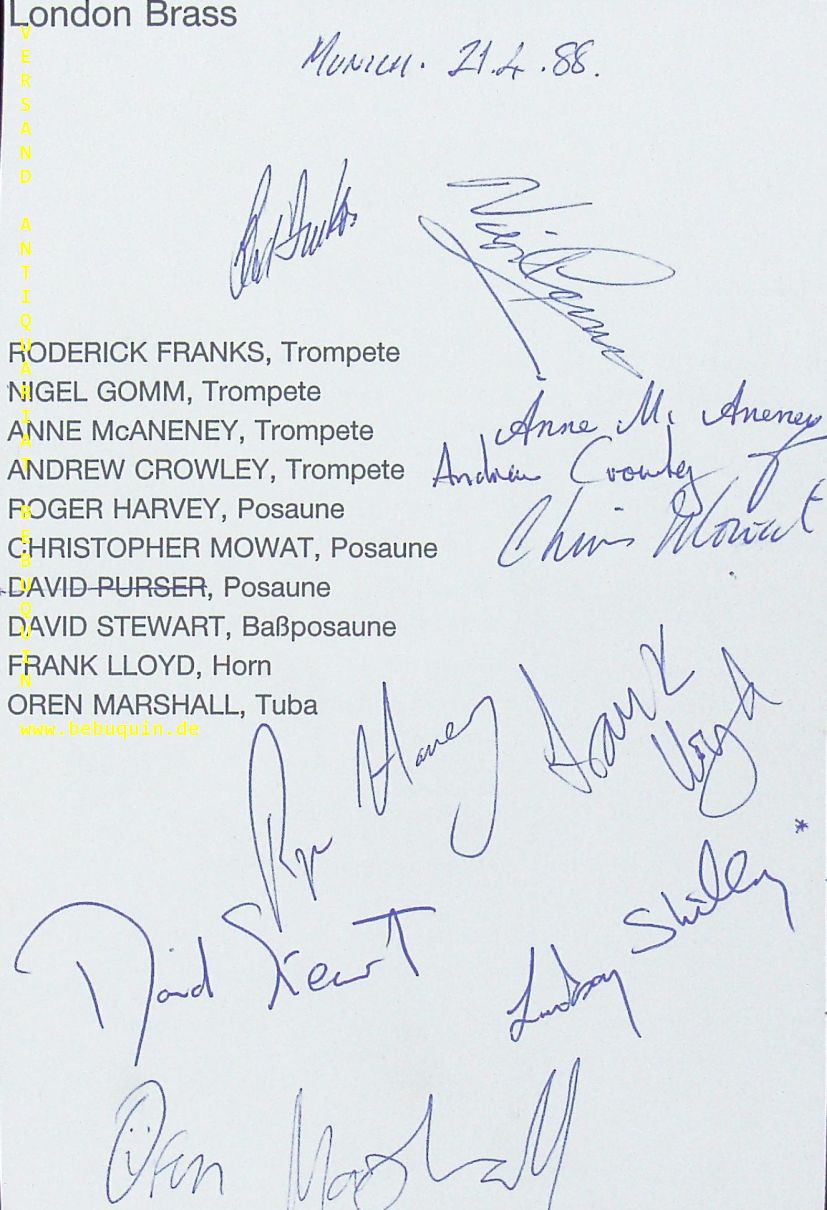 London Brass
MUNICH. 21.4.88.
Rod Franks
Nigel Gomm
RODERICK FRANKS, Trompete
NIGEL GOMM, Trompete
ANNE McANENEY, Trompete
Anne McAneney
ANDREW CROWLEY, Trompete
Andrew Crowley
ROGER HARVEY, Posaune
Chris Mowat
CHRISTOPHER MOWAT, Posaune
DAVID PURSER, Posaune
DAVID STEWART, Baßposaune
FRANK LLOYD, Horn
OREN MARSHALL, Tuba
Roger Harvey
Frank Lloyd
David Stewart
Lindsay Shilling *
Oren Marshall
VERSAND ANTIQUARIAT BEBUQUIN
www.bebuquin.de